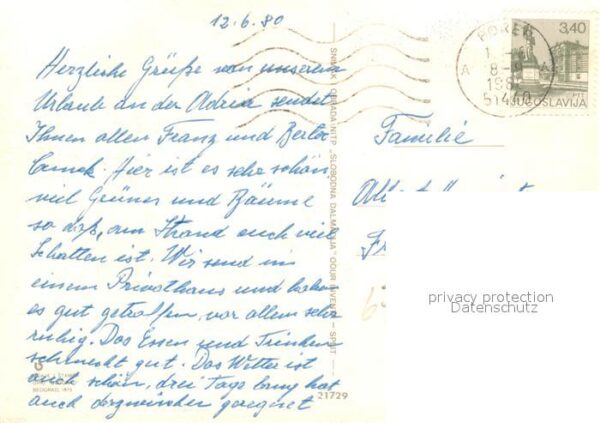 12.6.80
Herzliche Grüße von unserem
Urlaube an der Adria sendet
Ihnen allen Franz und Berta
Hier ist es sehr schön,
viel Grünes und Bäume
so daß, am Strand auch viel
Schatten ist. Wir send in
einem Privathaus und haben
es gut getroffen, vor allem sehr
ruhig. Das Essen und Trinken
schmeckt gut. Das Wetter ist
auch schön, drei Tage lang hat
auch dazwischen geregnet
SNIMAK I IZRADA INTP „SLOBODNA DALMACIJA" OOUR - SPLIT
BEOGRAD, 1975
21729
POREČ
8-9
A
51440
3,40
PTT
JUGOSLAVIJA
Familie
privacy protection
Datenschutz